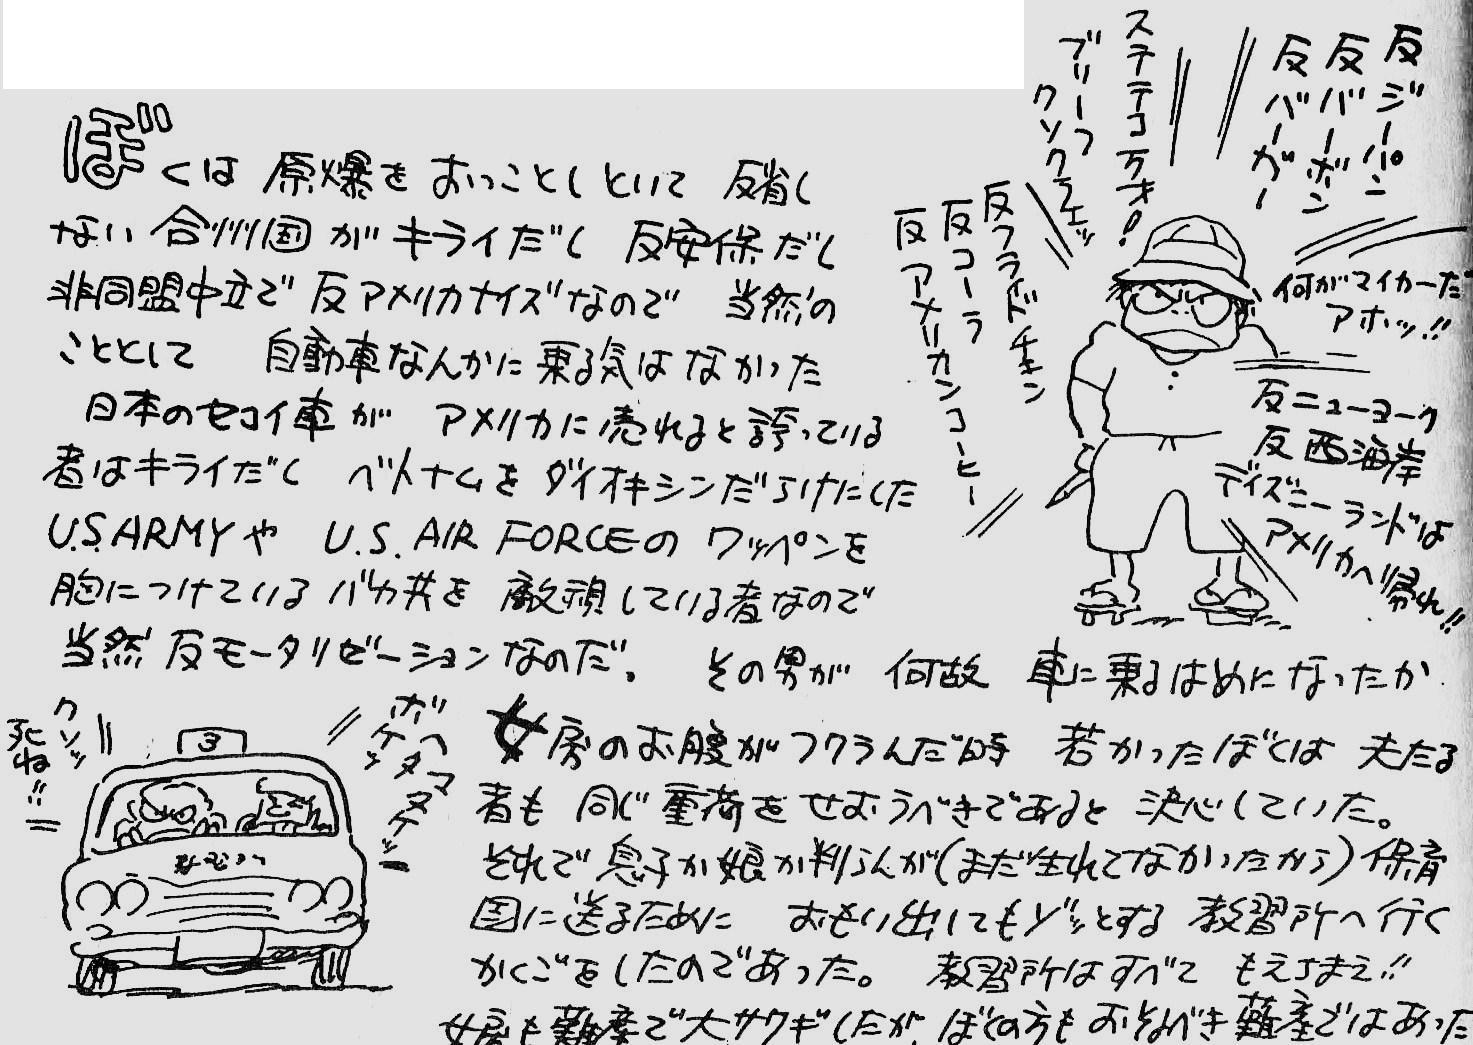 ぼくは 原爆を おっことしといて 反省し
ない 合州国が キライだし 反安保だし
非同盟中立で 反アメリカナイズなので 当然の
こととして 自動車なんかに 乗る気は なかった
日本のセコイ車が アメリカに売れると誇っている
者はキライだし ベトナムを ダイオキシンだらけにした
U.S.ARMYや U.S.AIR FORCEの ワッペンを
胸につけている バカ共を 敵視している者なので
当然 反モータリゼーションなのだ。 その男が 何故 車に乗るはめになったか
女房のお腹がフクラんだ時 若かったぼくは 夫たる
者も 同じ重荷を せおうべきであると 決心していた。
それで 息子か娘か判らんが(まだ生れてなかったから)保育
園に送るために おもい出してもゾッとする 教習所へ行く
かくごをしたのであった。 教習所はすべて もえちまえ!!
女房も難産で大サワギしたが、ぼくの方も おそるべき難産ではあった
反ジーパン
反バーボン
反バーガー
ステテコ万才!
ブリーフ
クソクラエッ
反フライドチキン
反コーラ
反アメリカンコーヒー
何がマイカーだ
アホッ!!
反ニューヨーク
反西海岸
ディズニーランドは
アメリカへ帰れ!!
クソッ
死ね!!
3
ヘタッ